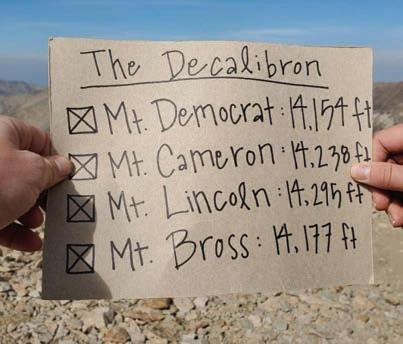 The Decalibron
Mt. Democrat: 14,154 ft
Mt. Cameron: 14,238 ft
Mt. Lincoln: 14,295 ft
Mt. Bross: 14,177 ft